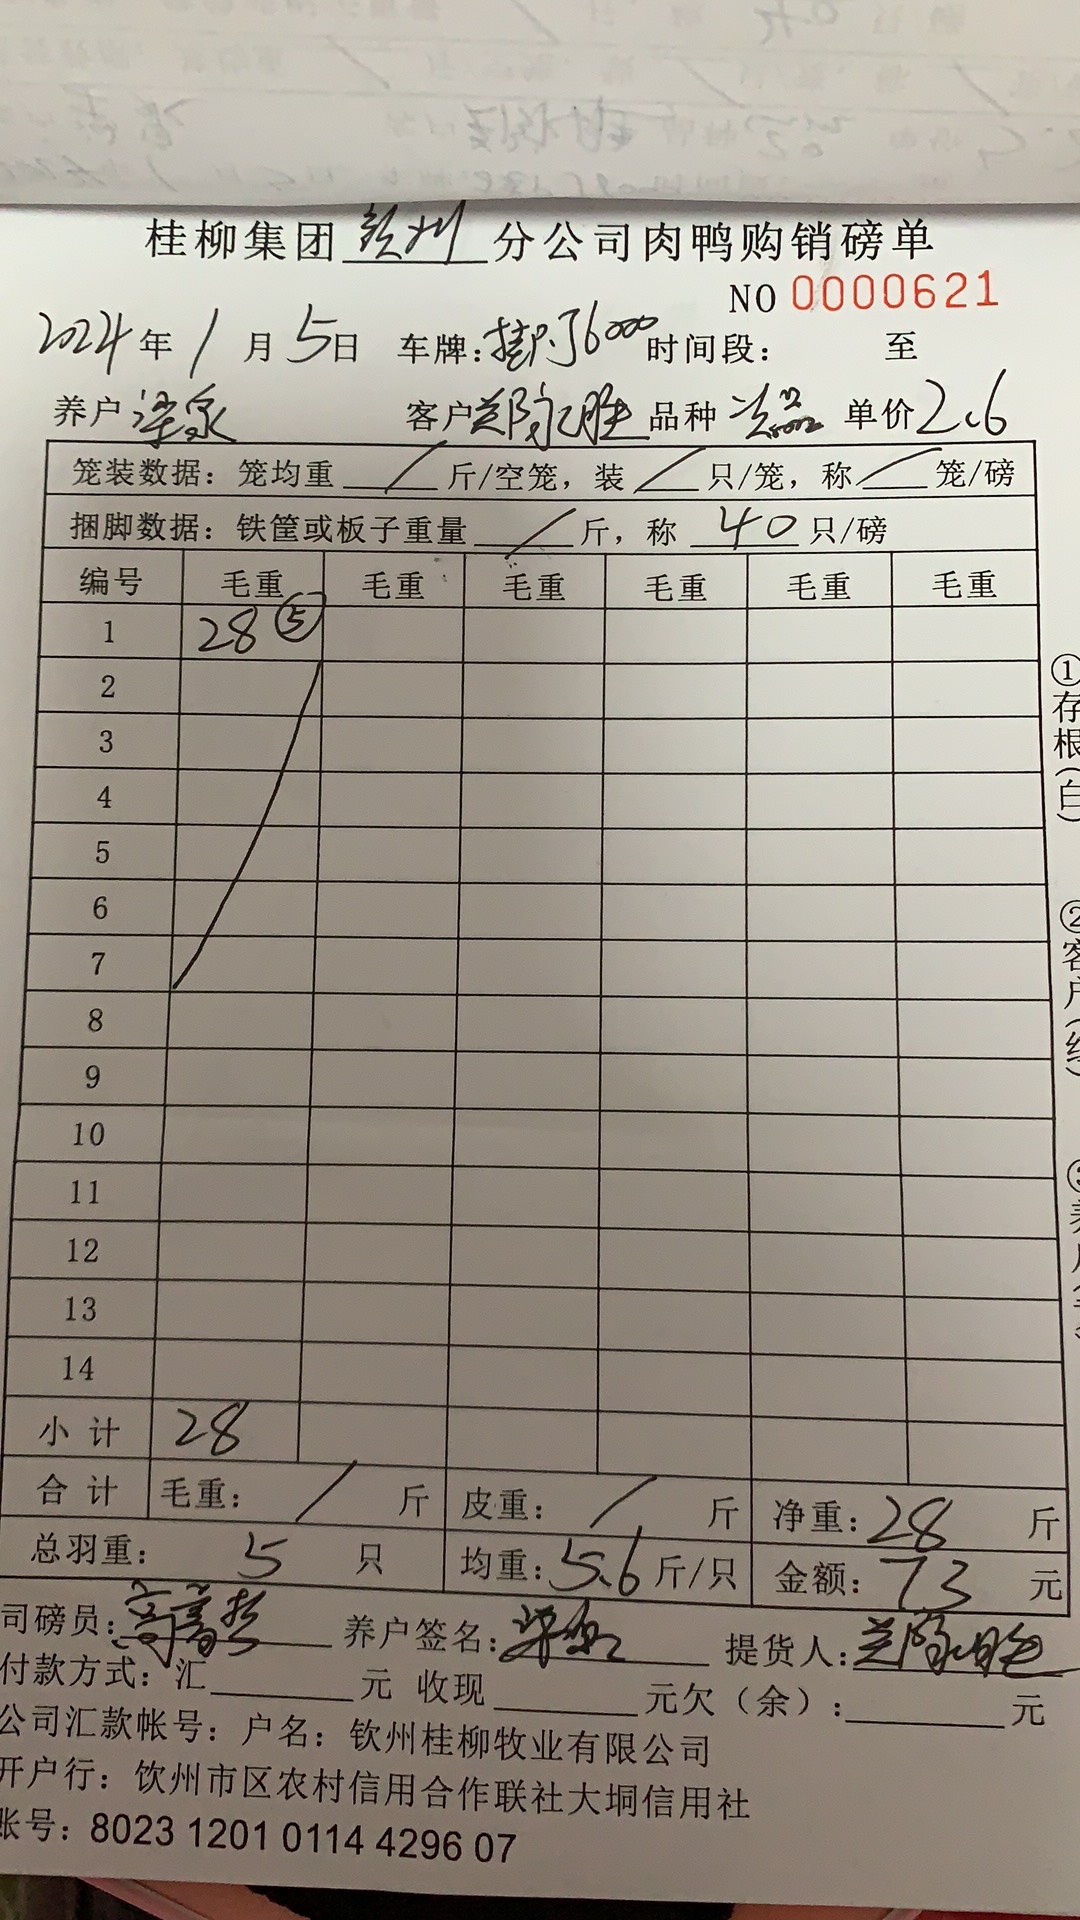 桂柳集团 钦州 分公司肉鸭购销磅单
NO 0000621
2024年 1月 5日 车牌:桂N J6000 时间段: 至
养户 梁泉 客户 胜 品种 单价 2.6
笼装数据: 笼均重 / 斤/空笼, 装 / 只/笼, 称 / 笼/磅
捆脚数据: 铁筐或板子重量 / 斤, 称 40 只/磅
编号 毛重 毛重 毛重 毛重 毛重 毛重
1 28 ⑤
2
3
4
5
6
7
8
9
10
11
12
13
14
小 计 28
合 计 毛重: / 斤 皮重: / 斤 净重: 28 斤
总羽重: 5 只 均重: 5.6 斤/只 金额: 73 元
司磅员: 养户签名: 梁泉 提货人:
付款方式: 汇 元 收现 元欠(余): 元
公司汇款帐号: 户名: 钦州桂柳牧业有限公司
开户行: 钦州市区农村信用合作联社大垌信用社
账号: 8023 1201 0114 4296 07
①存根(白)
②客户(红)